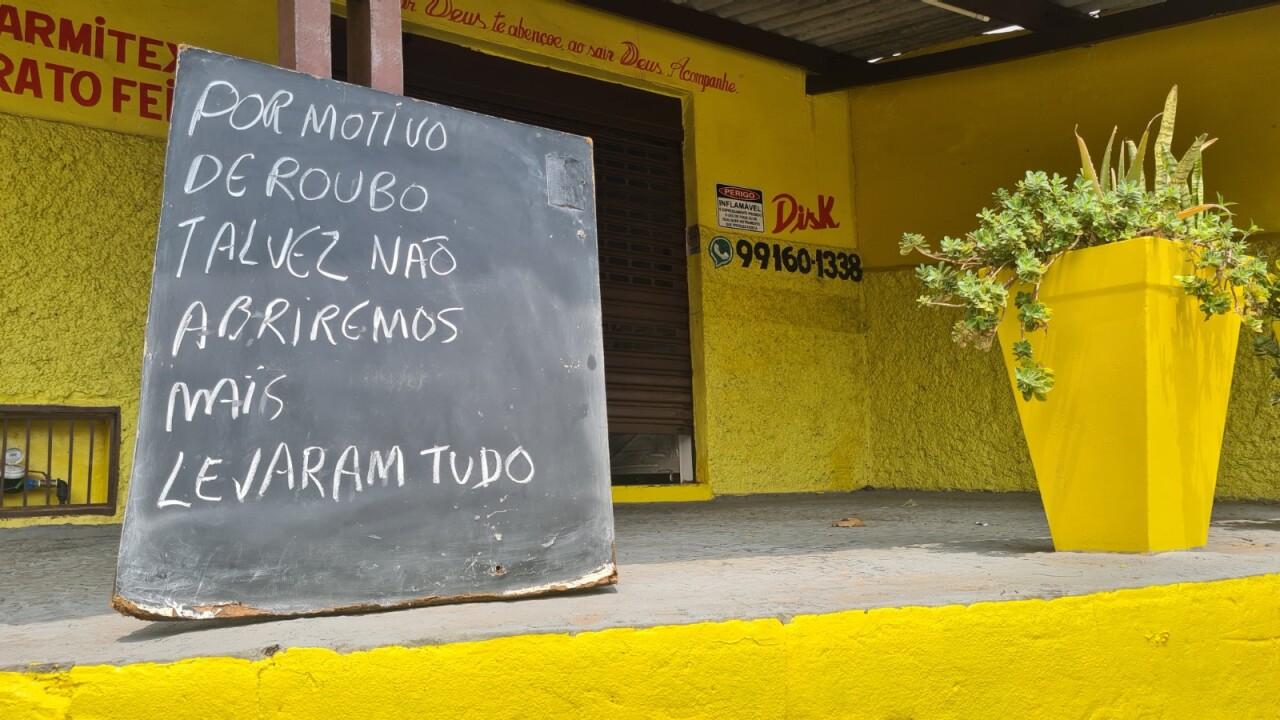 ARMITEX
RATO FEI
Deus te abençoe, ao sair Deus Acompanhe.
POR MOTIVO
DE ROUBO
TALVEZ NÃO
ABRIREMOS
MAIS
LEVARAM TUDO
PERIGO
INFLAMÁVEL
Disk
99160-1338